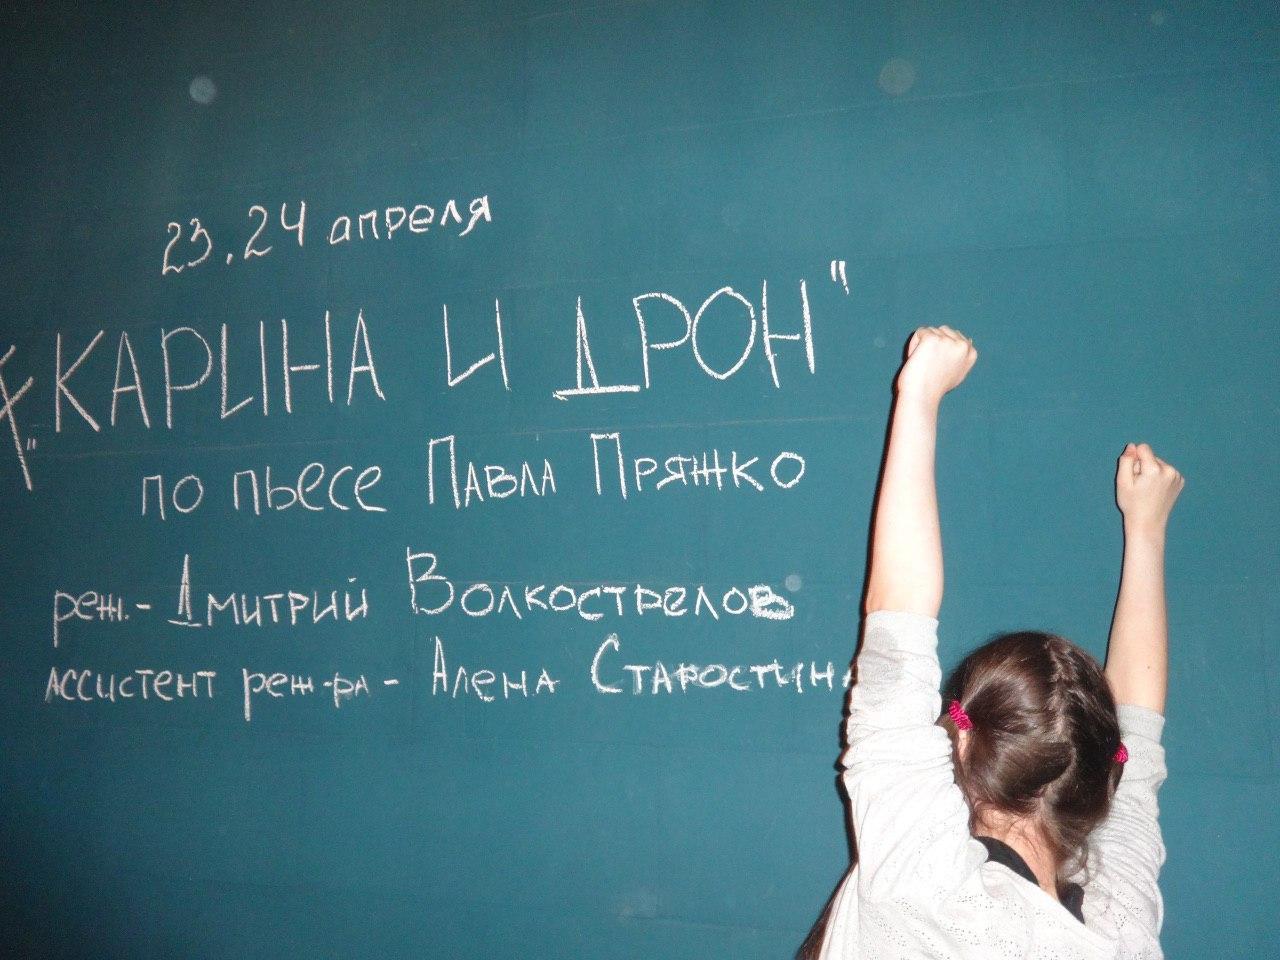 23, 24 апреля
"КАРИНА И ДРОН"
по пьесе Павла Пряжко
реж.- Дмитрий Волкострелов
ассистент реж-ра - Алена Старостина